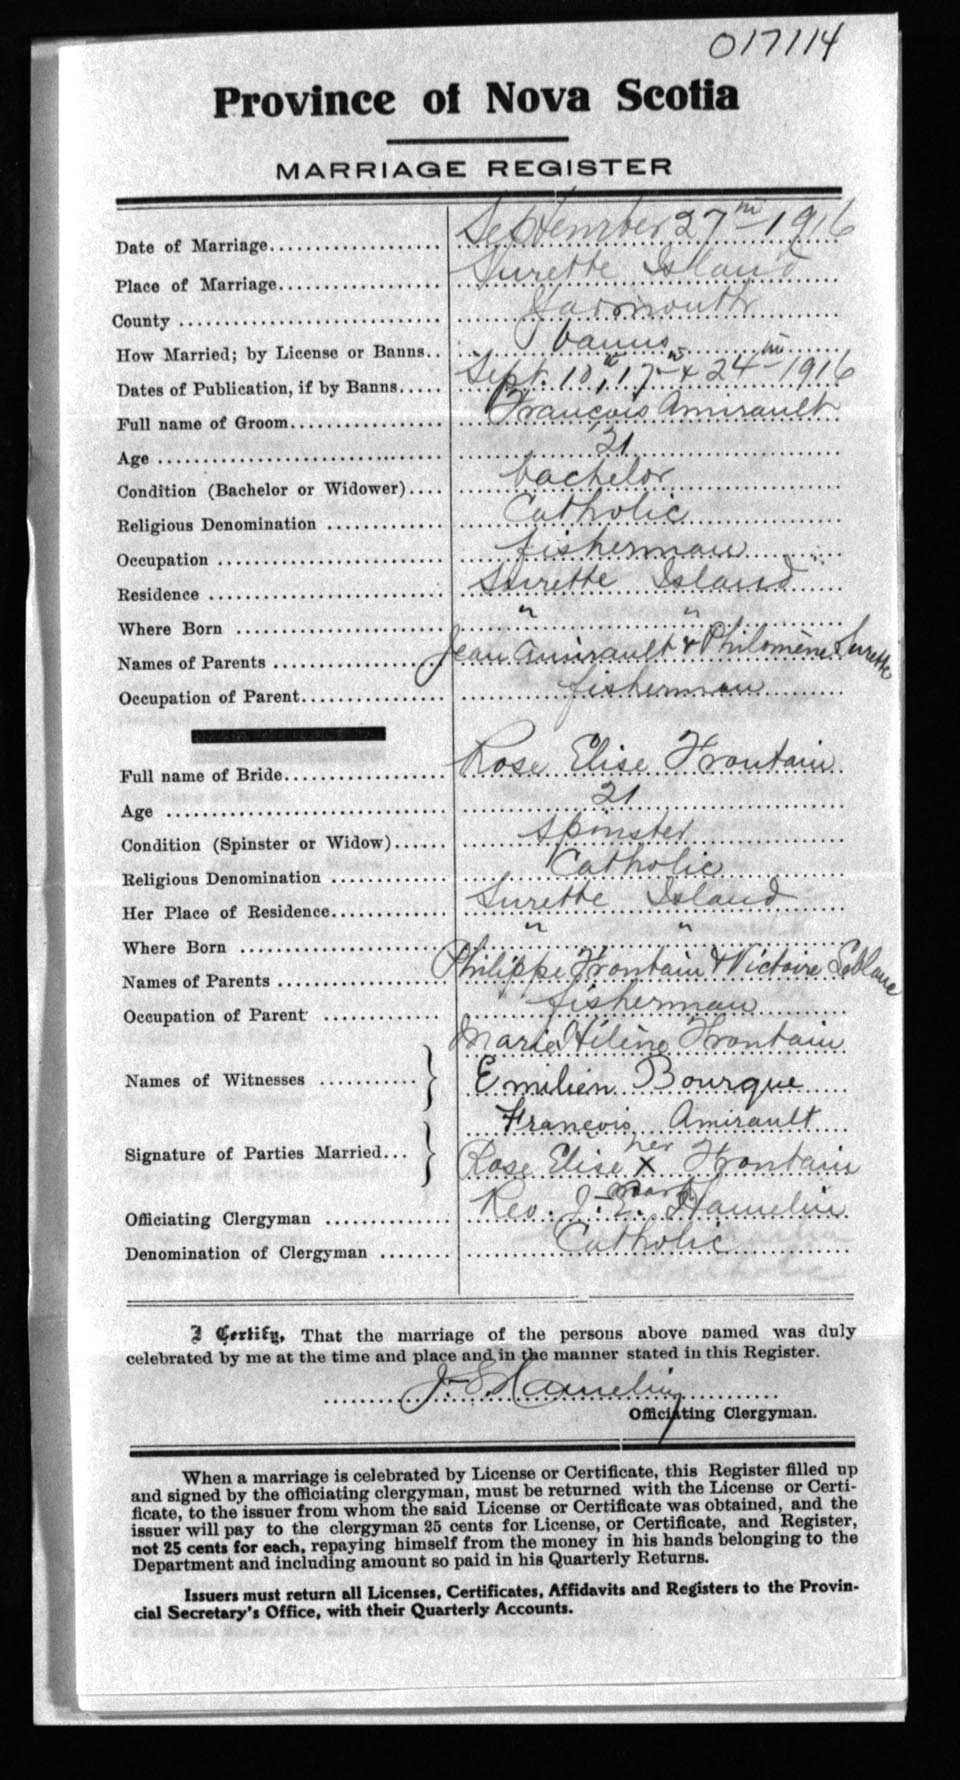 017114
Province of Nova Scotia
MARRIAGE REGISTER
Date of Marriage September 27th 1916
Place of Marriage Surette Island
County Yarmouth
How Married; by License or Banns banns
Dates of Publication, if by Banns Sept. 10th, 17th & 24th 1916
Full name of Groom François Amirault
Age 21
Condition (Bachelor or Widower) bachelor
Religious Denomination Catholic
Occupation fisherman
Residence Surette Island
Where Born " "
Names of Parents Jean Amirault & Philomène Surette
Occupation of Parent fisherman
Full name of Bride Rose Elise Frontain
Age 21
Condition (Spinster or Widow) spinster
Religious Denomination Catholic
Her Place of Residence Surette Island
Where Born " "
Names of Parents Philippe Frontain & Victoire LeBlanc
Occupation of Parent fisherman
Marie Hélène Frontain
Names of Witnesses Emilien Bourque
François Amirault
Signature of Parties Married Rose Elise her X mark Frontain
Officiating Clergyman Rev. J. E. Hamelin
Denomination of Clergyman Catholic
I Certify, That the marriage of the persons above named was duly
celebrated by me at the time and place and in the manner stated in this Register.
J. E. Hamelin
Officiating Clergyman.
When a marriage is celebrated by License or Certificate, this Register filled up
and signed by the officiating clergyman, must be returned with the License or Certi-
ficate, to the issuer from whom the said License or Certificate was obtained, and the
issuer will pay to the clergyman 25 cents for License, or Certificate, and Register,
not 25 cents for each, repaying himself from the money in his hands belonging to the
Department and including amount so paid in his Quarterly Returns.
Issuers must return all Licenses, Certificates, Affidavits and Registers to the Provin-
cial Secretary's Office, with their Quarterly Accounts.